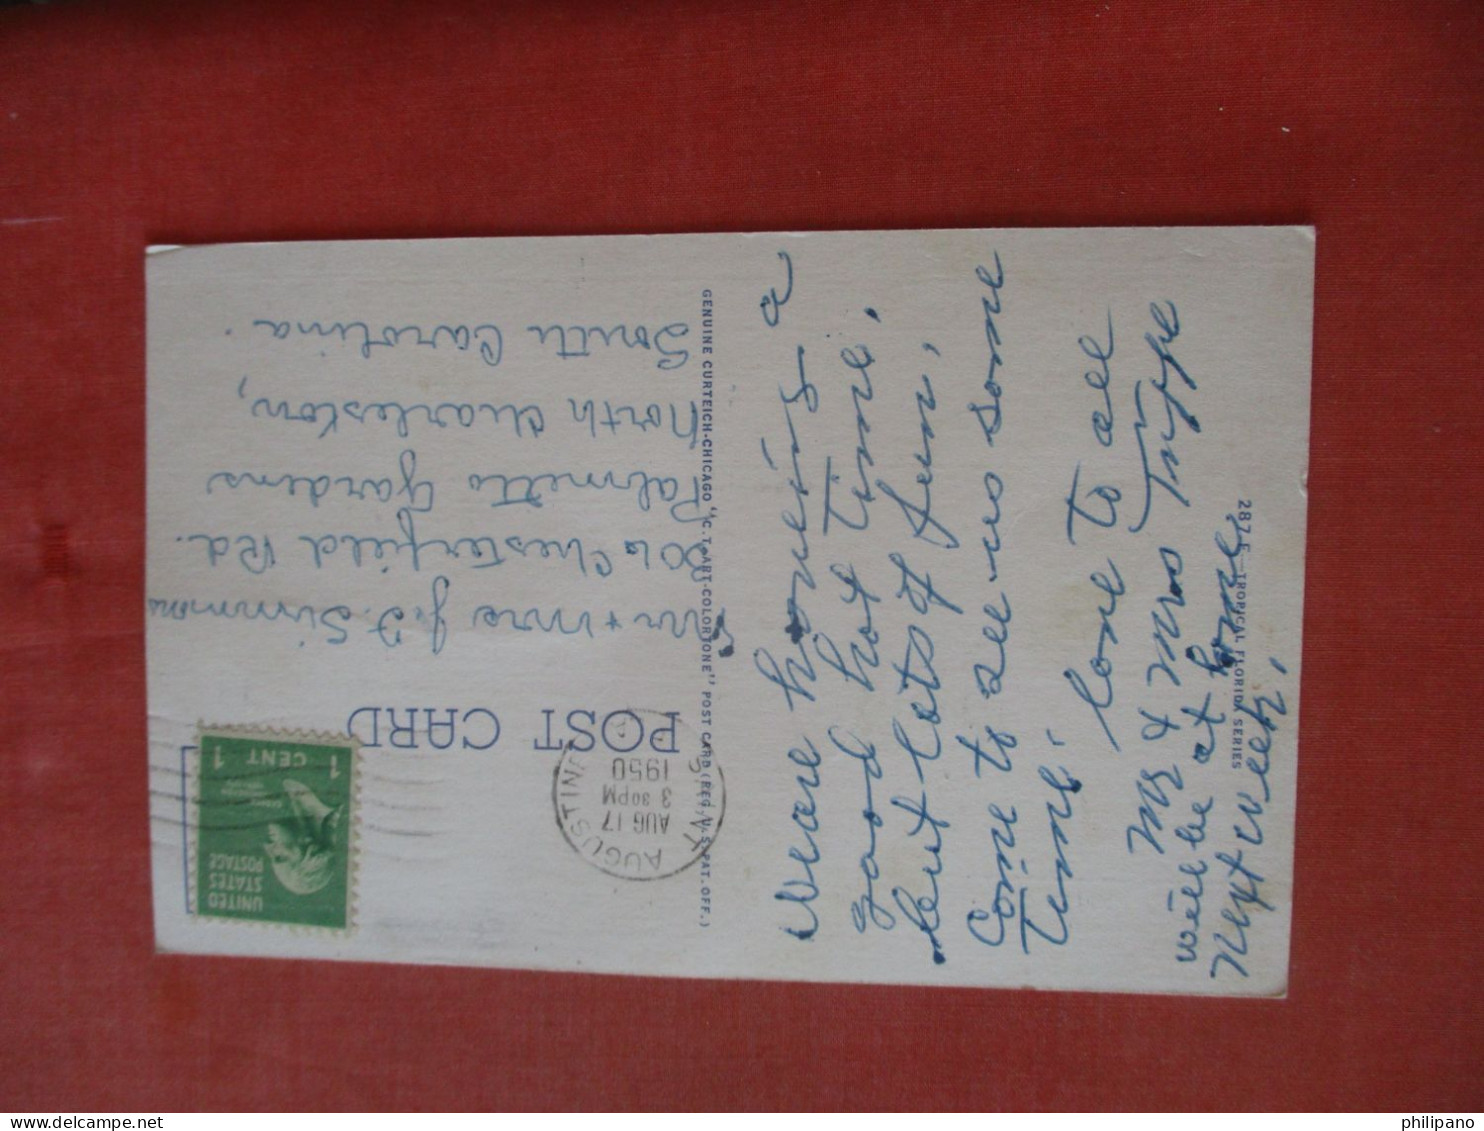 Weare having a
good hot time,
but lots of fun,
Come to see us some
time.
Love to all
Mr & Mrs Tripe
will be at home
Next week.
287 E—TROPICAL FLORIDA SERIES
GENUINE CURTEICH-CHICAGO "C.T. ART-COLORTONE" POST CARD (REG. U.S. PAT. OFF.)
POST CARD
SAINT AUGUSTINE
AUG 17
3 30PM
1950
UNITED
STATES
POSTAGE
1 CENT 1
Mr + Mrs J. D. Simmons
Chesterfield Rd.
Palmetto Gardens
North Charleston,
South Carolina.
philipano